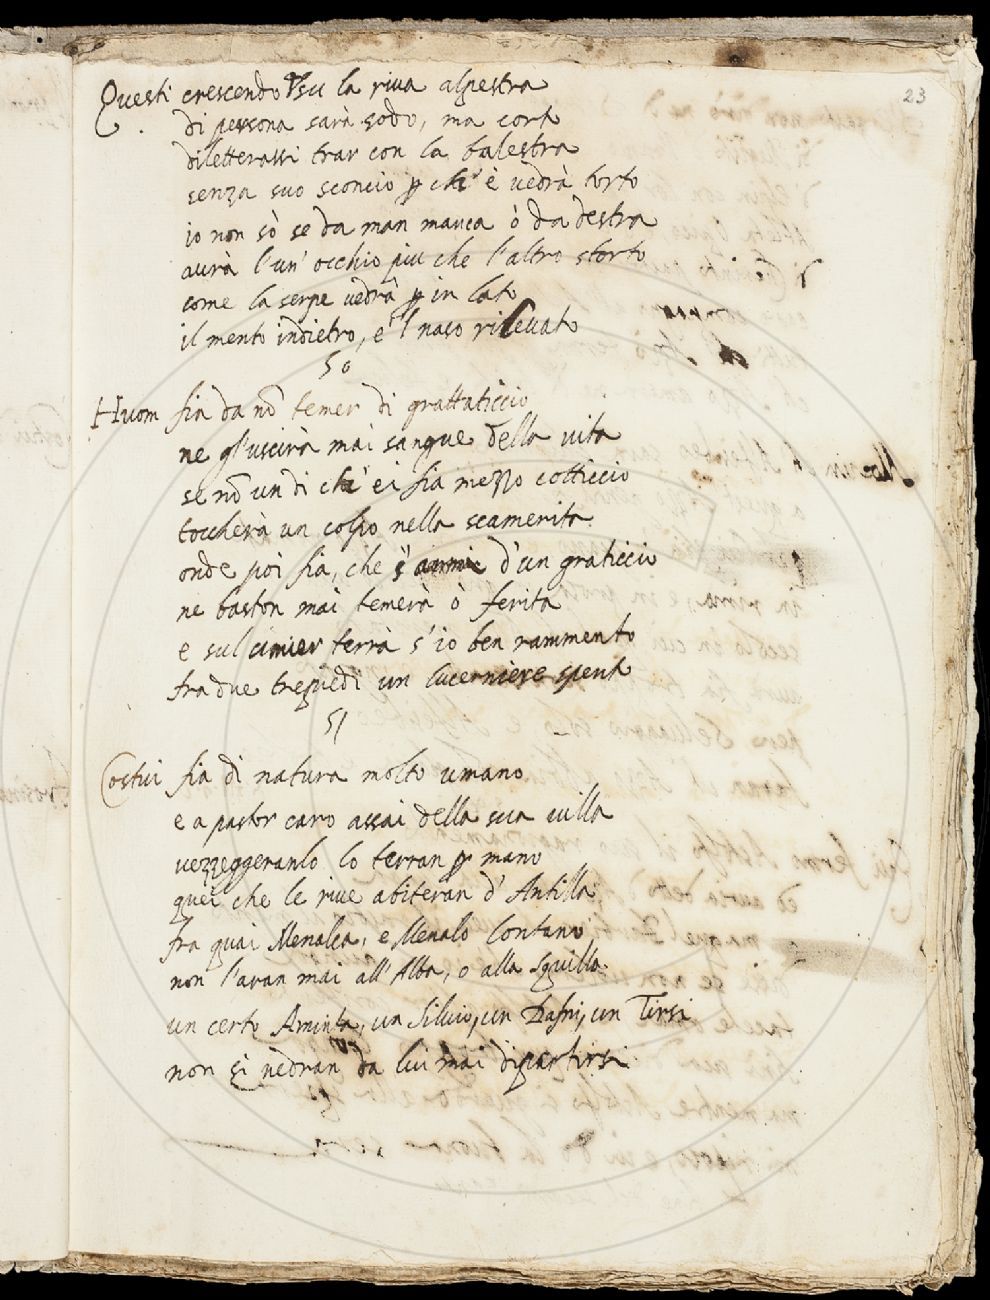 23
Questi crescendo su la riua alpestra
di persona sarà sodo, ma corto
diletterassi trar con la balestra
senza suo sconcio p ch'è uedrà torto
io non sò se da man manca ò da destra
aurà l'un' occhio piu che l'altro storto
come la serpe uedrà p in lato
il mento indietro, e 'l naso rileuato
50
Huom fia da nō temer di grattaticcio
ne gl'uscirà mai sangue della uita
se nō un dì ch' ei fia mezzo cotticcio
toccherà un colpo nella scamerita
onde poi fia, che s'armi d'un graticcio
ne baston mai temerà ò ferita
e sul cimier terrà s'io ben rammento
fra due trepiedi un lucerniere spento
51
Costui fia di natura molto umano
e a pastor caro assai della sua uilla
uezzeggeranlo lo terran p mano
quei che le riue abiteran d'Antilla
fra quai Menalca, e Menalo lontano
non l'aran mai all'Alba, o alla squilla
un certo Aminta, un Siluio, un Dafni, un Tirsi
non si uedran da lui mai dipartirsi